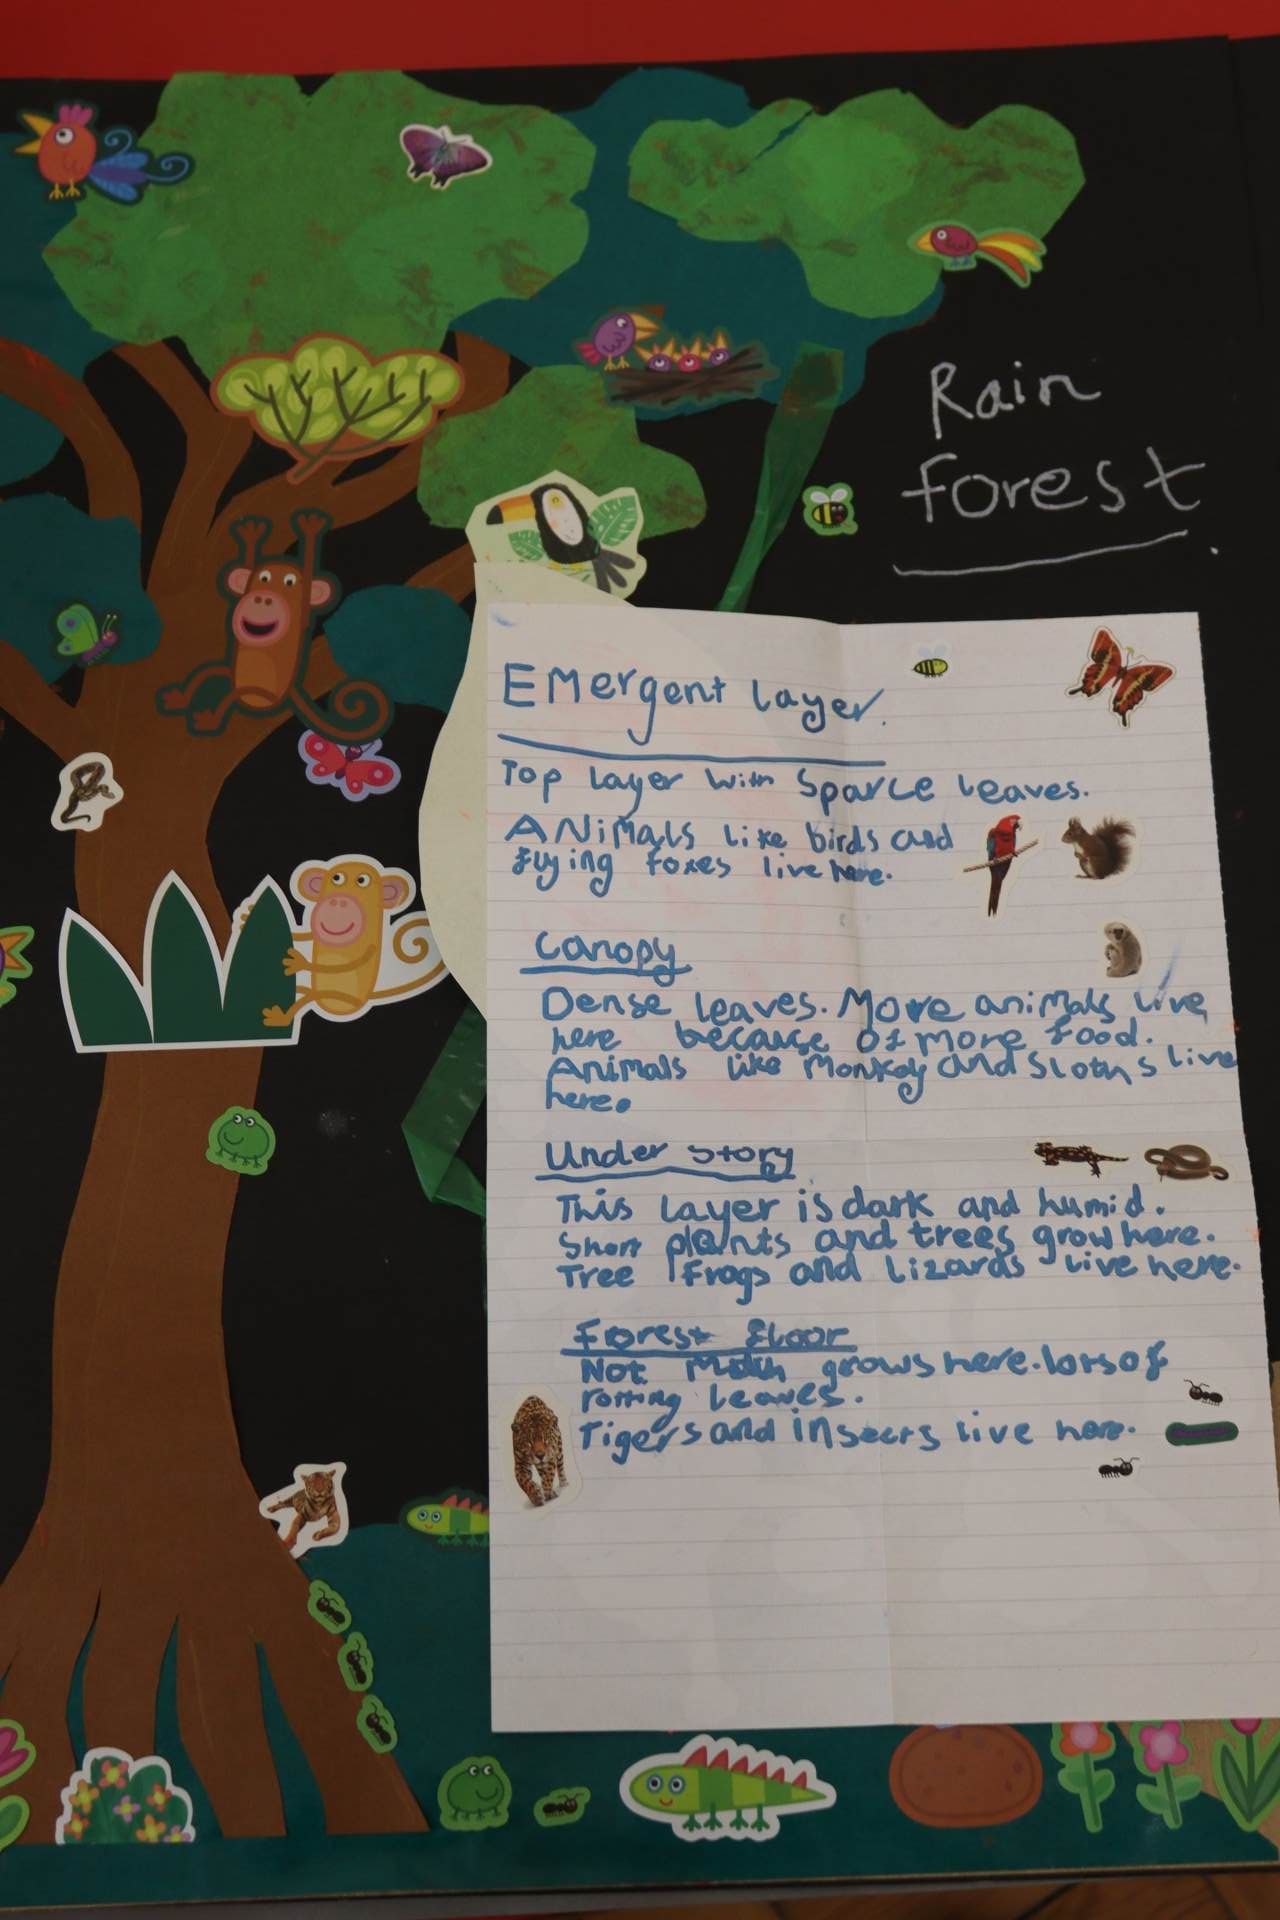 Rain
forest.
Emergent layer.
Top layer with sparce leaves.
Animals like birds and
flying foxes live here.
Canopy
Dense leaves. More animals live
here because of more food.
Animals like monkey and sloths live
here.
Under story
This layer is dark and humid.
Short plants and trees grow here.
Tree frogs and lizards live here.
Forest floor
Not much grows here. lots of
rotting leaves.
Tigers and insects live here.